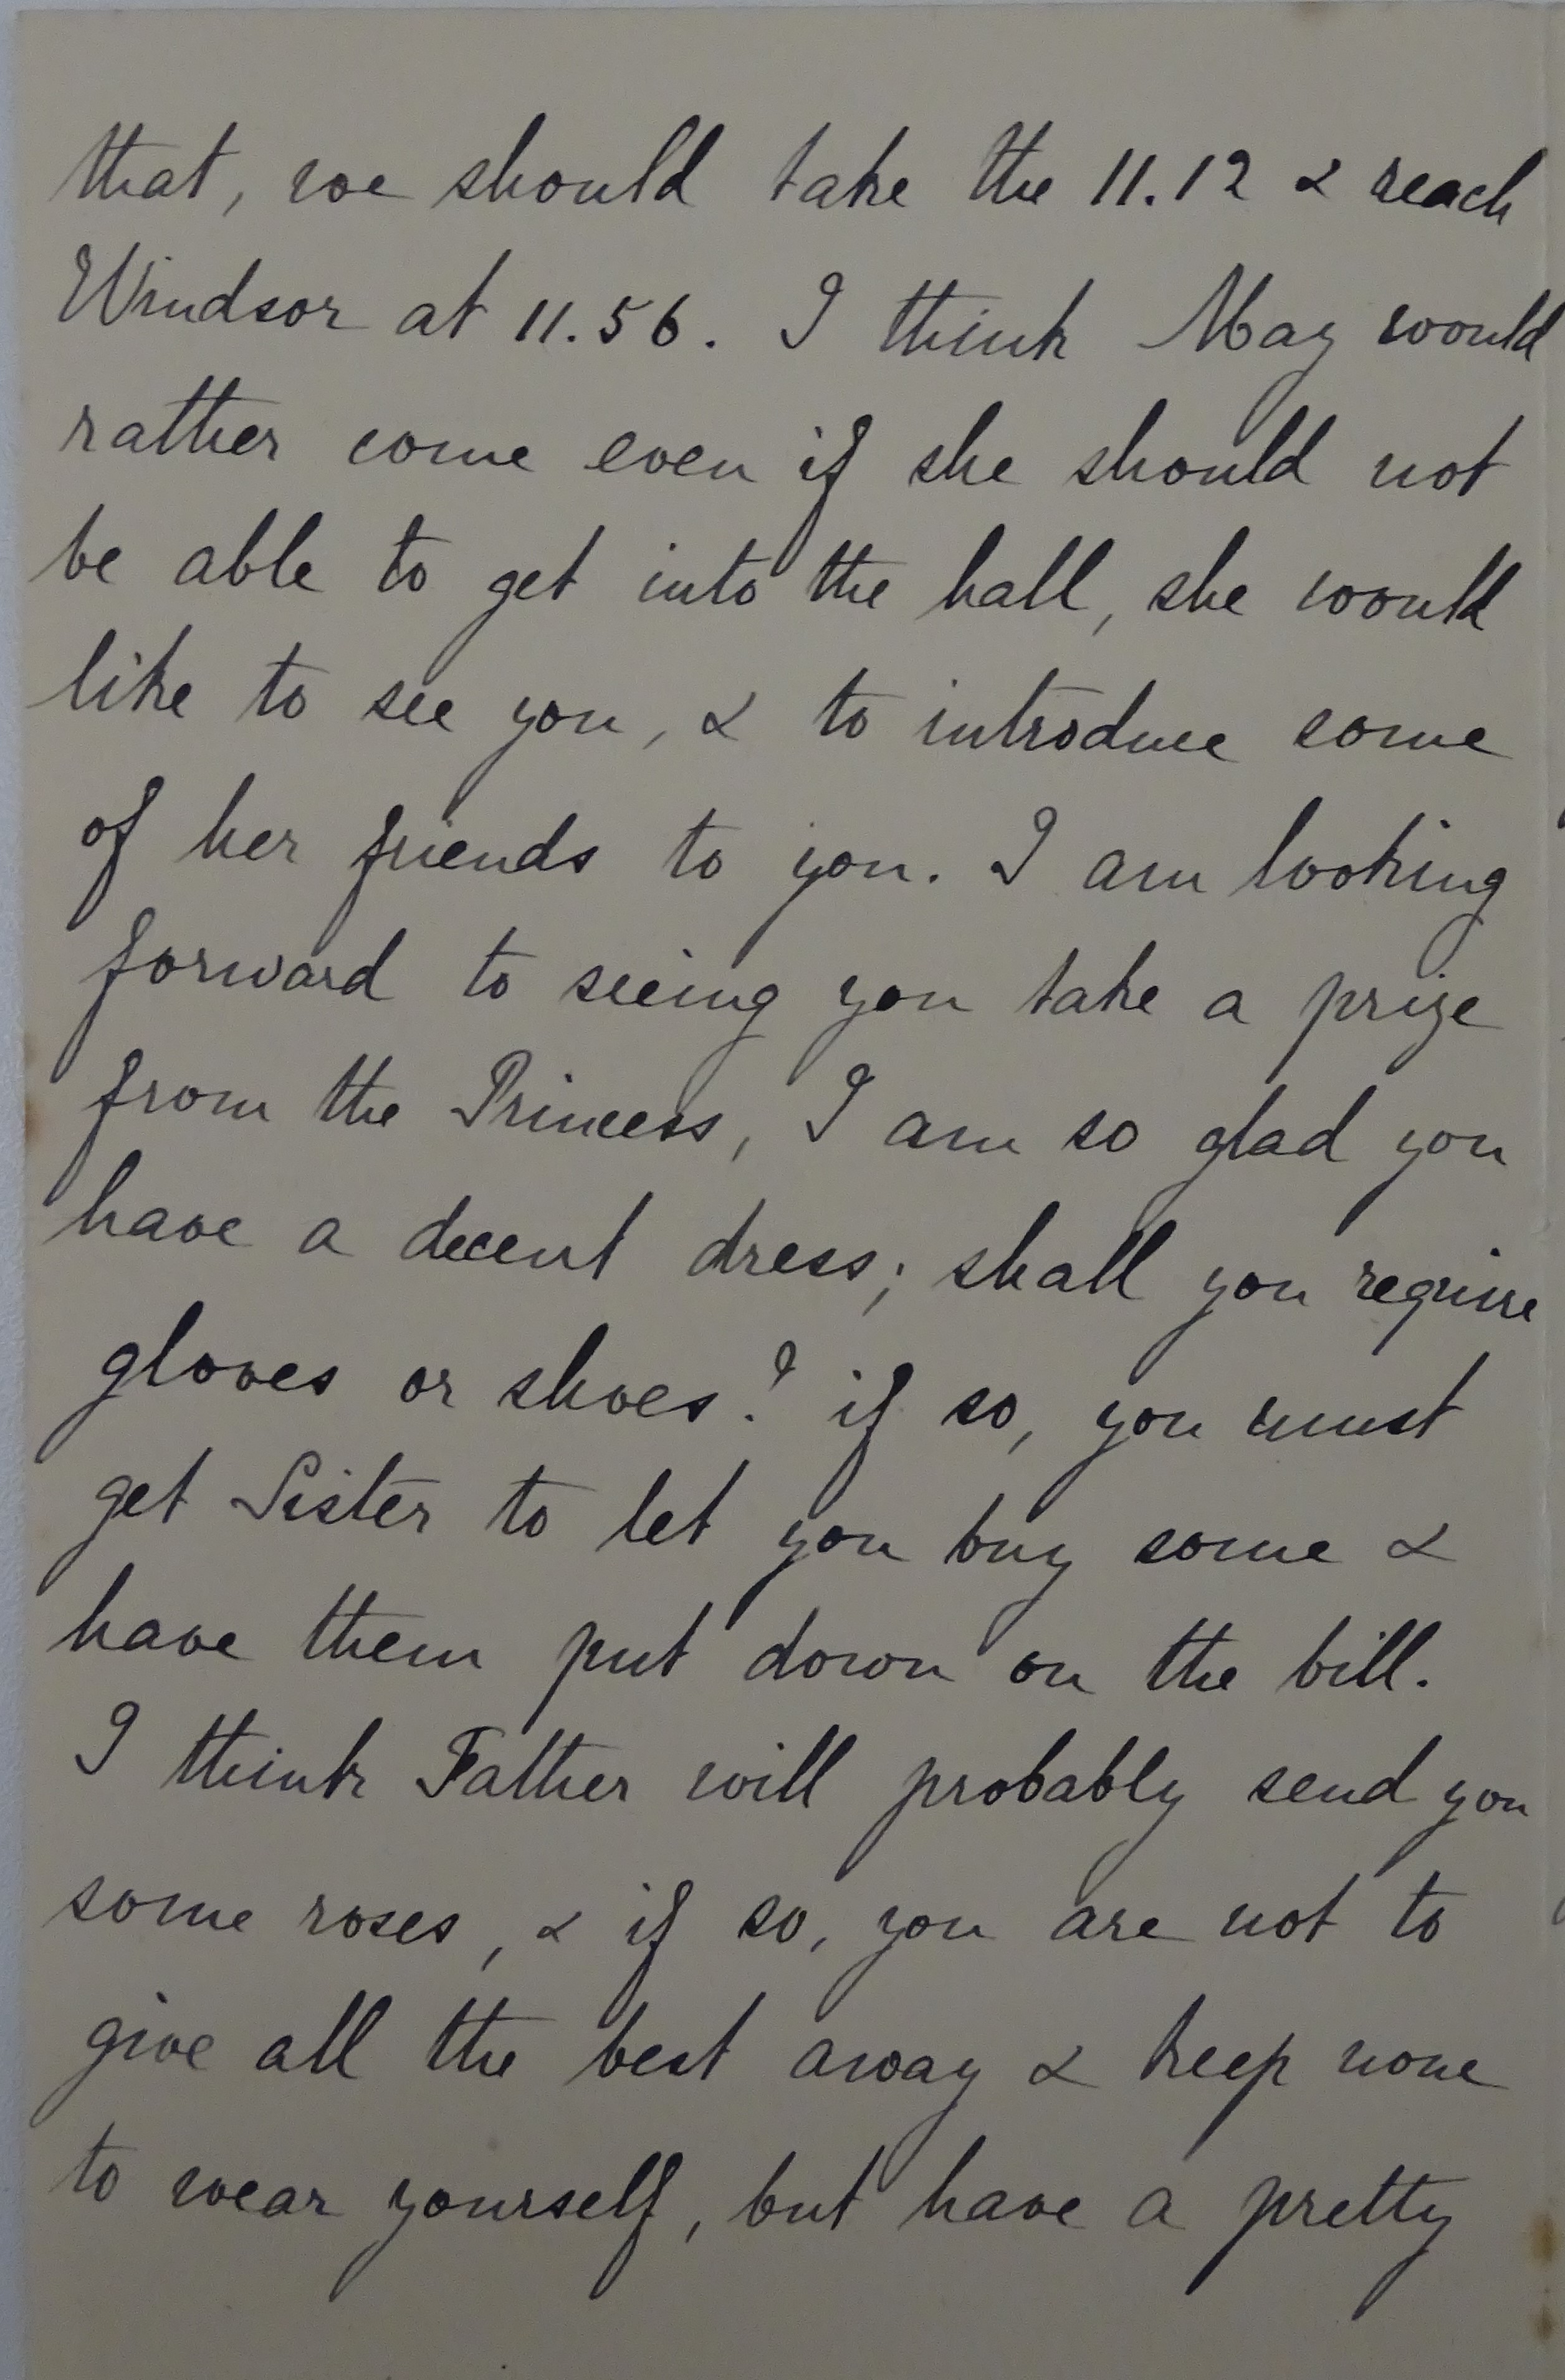 that, we should take the 11.12 & reach
Windsor at 11.56. I think May would
rather come even if she should not
be able to get into the hall, she would
like to see you, & to introduce some
of her friends to you. I am looking
forward to seeing you take a prize
from the Princess, I am so glad you
have a decent dress; shall you require
gloves or shoes? if so, you must
get Sister to let you buy some &
have them put down on the bill.
I think Father will probably send you
some roses, & if so, you are not to
give all the best away & keep none
to wear yourself, but have a pretty